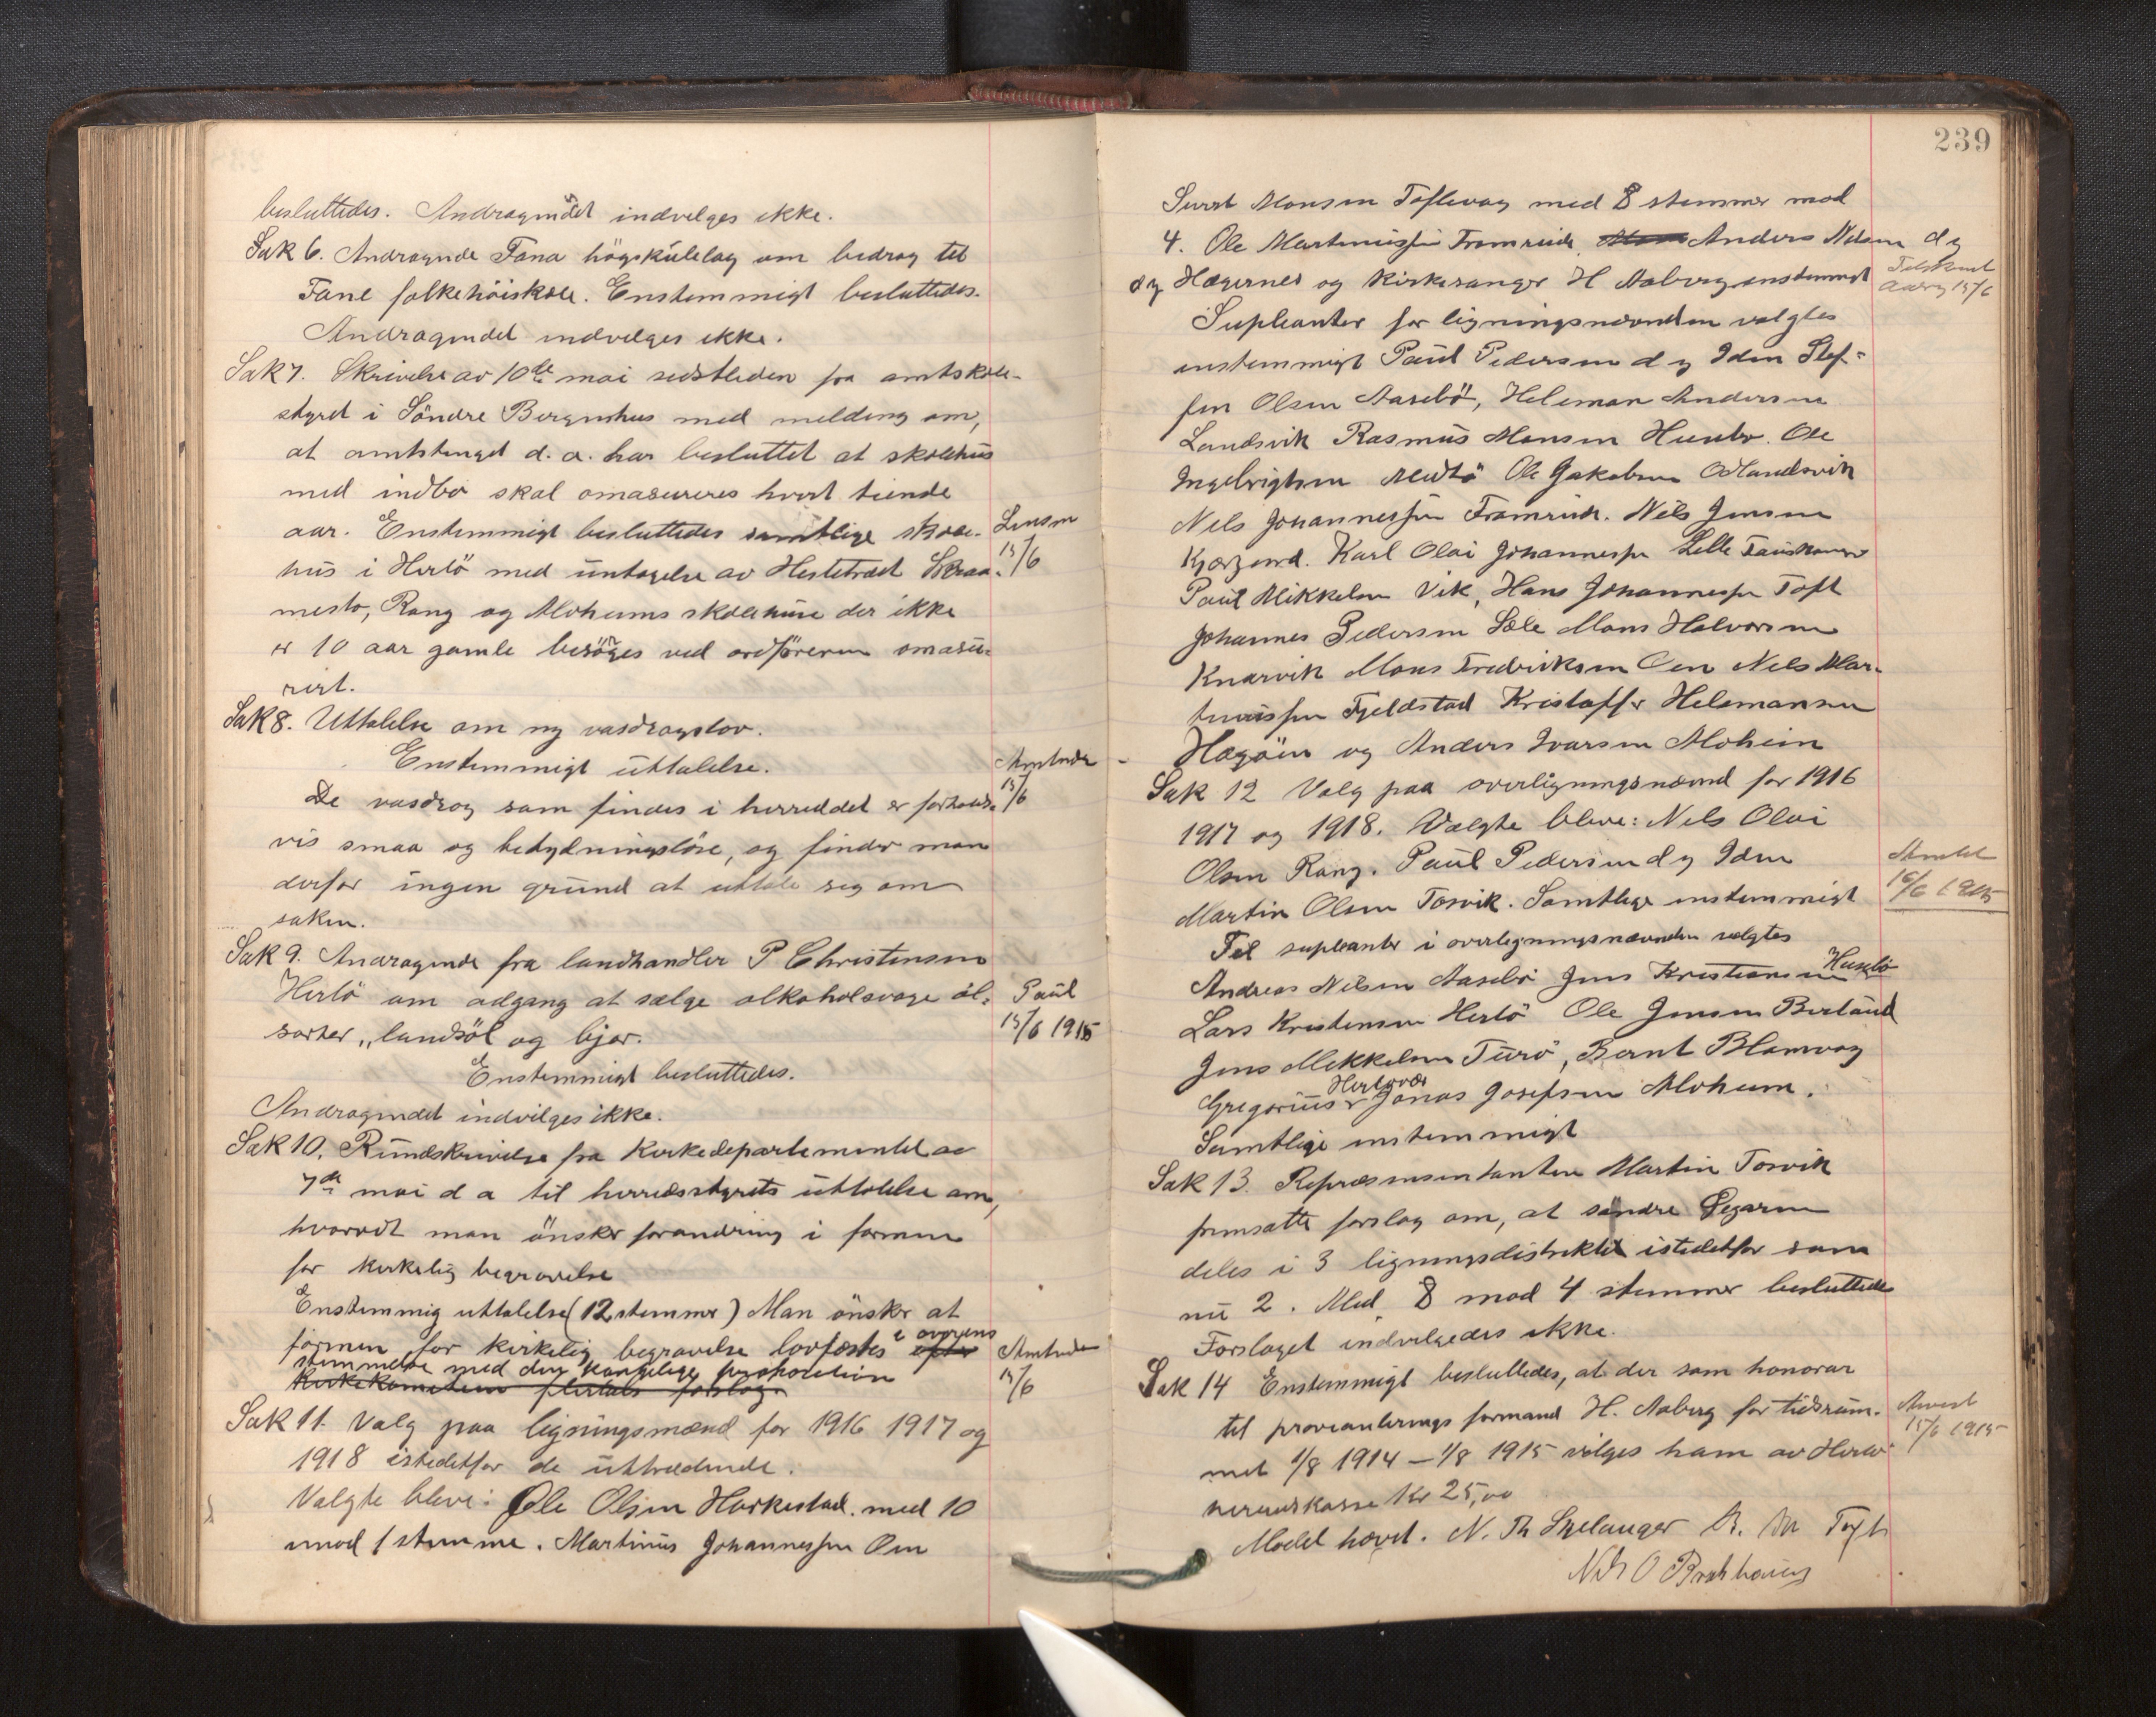 besluttedes. Andragendet indvelges ikke.
Sak 6. Andragende Fana högskulelag om bedrag til
Fane folkehöiskole. Enstemmigt besluttedes.
Andragendet indvelges ikke.
Sak 7. Skrivelse av 10de mai sidstleden fra amtskole-
styret i Söndre Bergenhus med melding om,
at amtstinget d. a. har besluttet at skolehus
med indbo skal omasureres hvert tiende
aar. Enstemmigt besluttedes samtlige skole-
hus i Herlö med untagelse av Hestetræet Skraa-
mesto, Rong og Moheims skolehuse der ikke
er 10 aar gamle besörges ved ordföreren omasu-
rert.
Lensm
15/6
Sak 8. Uttalelse om ny vasdragslov.
Enstemmigt uttalelse.
De vasdrag som findes i herreddet er forholds-
vis smaa og betydningslöse, og finder man
derfor ingen grund at uttale seg om
saken.
Amtmd
15/6
Sak 9. Andragende fra landhandler P Christensen
Herlö om adgang at sælge alkoholsvage öl-
sorter, "landsöl og bjor.
Enstemmigt besluttedes.
Andragendet indvilges ikke.
Paul
15/6 1915
Sak 10. Rundskrivelse fra Kirkedepartementet av
7de mai d a til herredsstyrets uttalelse om,
hvorvdt man önsker forandring i formen
for kirkelig begravelse
Enstemmig uttalelse (12 stemmer) Man önsker at
formen for kirkelig begravelse lovfæstes efter i overens
stemmelse med den kongelige proposition
Kirkekomiteens flertals forslag.
Amtmd
15/6
Sak 11. Valg paa ligningsmænd for 1916 1917 og
1918 istedetfor de uttrædende.
Valgte bleve: Ole Olsen Harkestad. med 10
mod 1 stemme. Martinus Johannessen Oen
239
Sivert Monsen Toftevag med 8 stemmer mod
4. Ole Martinussen Fromreide Anders Nilsen d y
d y Hægernes og Kirkesanger H Aaberg enstemmigt
15/6
Supleanter for ligningsnævnden valgtes
enstemmigt Paul Pedersen d y Iden Stef-
fen Olsen Aasebö, Heleman Andersen
Landsvik Rasmus Monsen Husebo. Ole
Ingebrigtsen Midtö Ole Jakobsen Oddandsvik
Nils Johannessen Fromreide. Nils Jensen
Kjærgard. Karl Olai Johannessen Lille Fauskanger
Paul Mikkelsen Vik, Hans Johannessen Toft
Johannes Pedersen Sæle Mons Halvorsen
Knarvik Mons Fredriksen Oen Nils Mar-
tinussen Fjeldstad Kristoffer Helemansen
Hagöien og Anders Ivarsen Moheim
Sak 12 Valg paa overligningsnævnd for 1916
1917 og 1918. Valgte bleve: Nils Olai
Olsen Rong. Paul Pedersen d y Iden
Martin Olsen Tosvik. Samtlige enstemmigt
Amtet
16/6 1915
Til supleanter i overligningsnævnden valgtes
Andreas Nilsen Aasebö Jens Kristiansen Husebö
Lars Kristensen Herlö Ole Jensen Berland
Jens Mikkelsen Turö, Bernt Blomvag
Gregorius Herlövær Jonas Josefsen Moheim.
Samtlige enstemmigt
Sak 13. Repræsensentanten Martin Tosvik
fremsatte forslag om, at söndre Segarne
deles i 3 ligningsdistrikter istedetfor som
nu 2. Med 8 mod 4 stemmer besluttedes
Forslaget indvelgedes ikke.
Sak 14 Enstemmigt besluttedes, at der som honorar
til provianterings formand H. Aaberg for tidsrum-
met 1/8 1914 – 1/8 1915 vilges ham av Herlö
herredskasse Kr 25,00
Anvist
15/6 1915
Mödet hævet. N. Th Skelanger